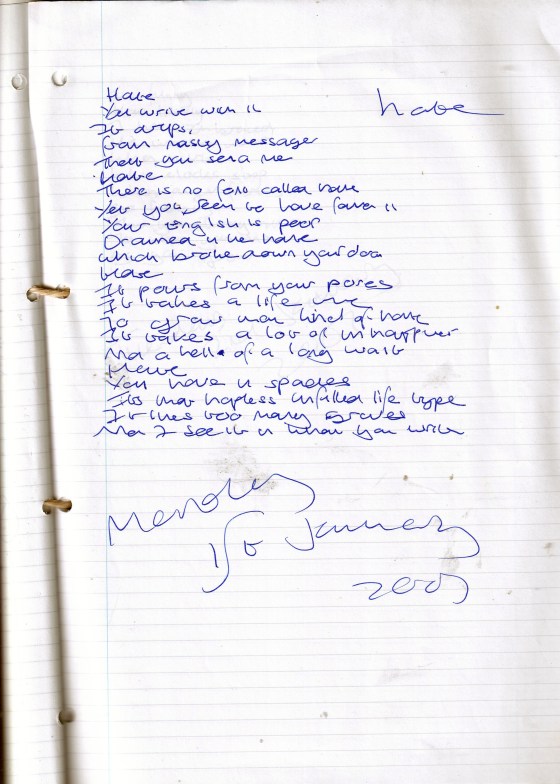 hate
Hate
You write with it
It drips,
from nasty messages
That you send me
Hate
There is no font called hate
Yet you seem to have found it
Your English is poor
Drowned in the hate
which broke down your door
Hate
It pours from your pores
It takes a life time
To grow that kind of hate
It takes a lot of unhappiness
And a hell of a long wait
Hate
You have it in spades
Its that hopeless unfulfilled life type
It lines too many graves
And I see it in what you write
Monday
1st January